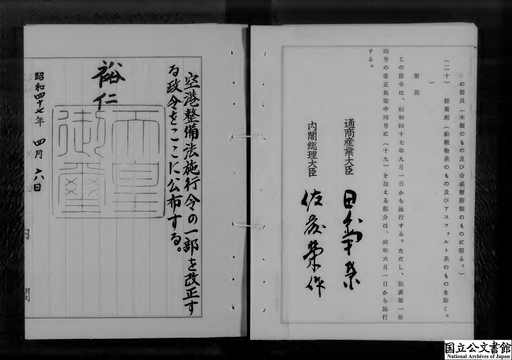 の器具（木製のもの及び合成樹脂製のものに限る。）
（二十） 接着剤（動植物系のもの及びアスファルト系のものを除く。
）
附則
この政令は、昭和四十七年九月一日から施行する。ただし、別表第一第
四号の改正規定中同号に（十九）を加える部分は、同年六月一日から施行
する。
通商産業大臣 田中角榮
内閣総理大臣 佐藤榮作
空港整備法施行令の一部を改正す
る政令をここに公布する。
裕仁
天皇
御璽
昭和四十七年 四月 六日
内 閣
国立公文書館
National Archives of Japan